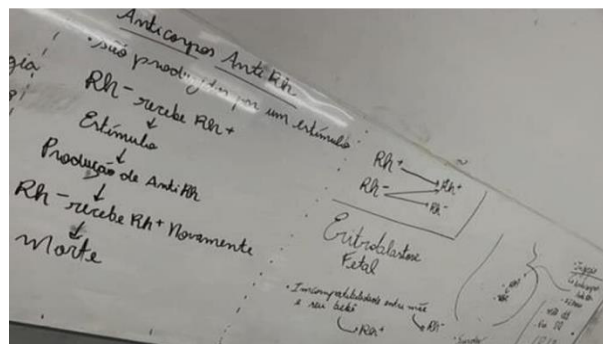 Anticorpos Anti Rh
• São produzidos por um estímulo
Rh- recebe Rh+
↓
Estímulo
↓
Produção de Anti Rh
↓
Rh- recebe Rh+ Novamente
↓
Morte
gia
Rh+ → Rh+
Rh-
Rh-
Eritroblastose
Fetal
• Imcompatibilidade entre mãe
e seu bebê
Rh+ Rh-